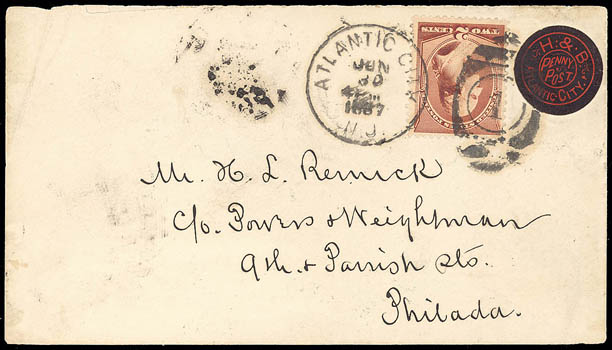 ATLANTIC CITY
JUN
30
4 PM
1887
N.J.
TWO 2 CENTS
1
H. & B.
PENNY
POST
ATLANTIC-CITY.
Mr. H. L. Remick
c/o. Powers & Weightman
9th. & Parrish sts.
Philada.